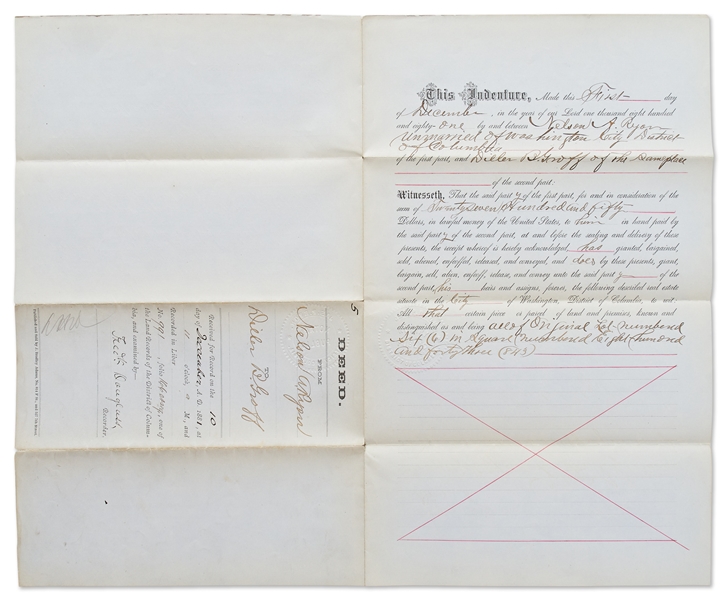 This Indenture, Made this First day
of December, in the year of our Lord one thousand eight hundred
and eighty-one by and between Nelson A. Ryan
unmarried of Washington City District
of Columbia
of the first part, and Diller B. Groff of the same place
of the second part:
Witnesseth, That the said party of the first part, for and in consideration of the
sum of Twenty seven Hundred and fifty
Dollars, in lawful money of the United States, to him in hand paid by
the said party of the second part, at and before the sealing and delivery of these
presents, the receipt whereof is hereby acknowledged has granted, bargained,
sold, aliened, enfeoffed, released, and conveyed, and does by these presents, grant,
bargain, sell, alien, enfeoff, release, and convey unto the said party of the
second part, his heirs and assigns, forever, the following described real estate
situate in the City of Washington, District of Columbia, to wit:
All that certain piece or parcel of land and premises, known and
distinguished as and being all of Original Lot numbered
Six (6) in Square numbered Eight hundred
and forty three (843)
DEED.
FROM
Nelson A Ryan
TO
Diller B. Groff
Received for Record on the 10
day of December A.D. 1881, at
11 o'clock, M., and
Recorded in Liber
No. 991, folio et seq., one of
the Land Records of the District of Colum-
bia, and examined by
Fredk Douglass,
Recorder.